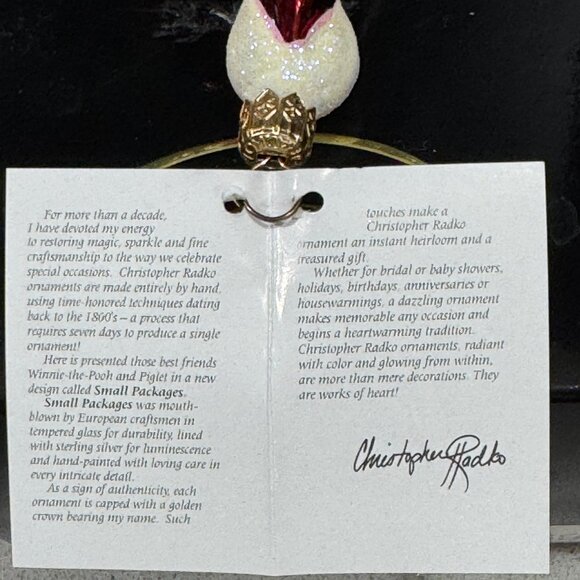 For more than a decade,
I have devoted my energy
to restoring magic, sparkle and fine
craftsmanship to the way we celebrate
special occasions. Christopher Radko
ornaments are made entirely by hand,
using time-honored techniques dating
back to the 1860's – a process that
requires seven days to produce a single
ornament!
Here is presented those best friends
Winnie-the-Pooh and Piglet in a new
design called Small Packages.
Small Packages was mouth-
blown by European craftsmen in
tempered glass for durability, lined
with sterling silver for luminescence
and hand-painted with loving care in
every intricate detail.
As a sign of authenticity, each
ornament is capped with a golden
crown bearing my name. Such
touches make a
Christopher Radko
ornament an instant heirloom and a
treasured gift.
Whether for bridal or baby showers,
holidays, birthdays, anniversaries or
housewarmings, a dazzling ornament
makes memorable any occasion and
begins a heartwarming tradition.
Christopher Radko ornaments, radiant
with color and glowing from within,
are more than mere decorations. They
are works of heart!
Christopher Radko